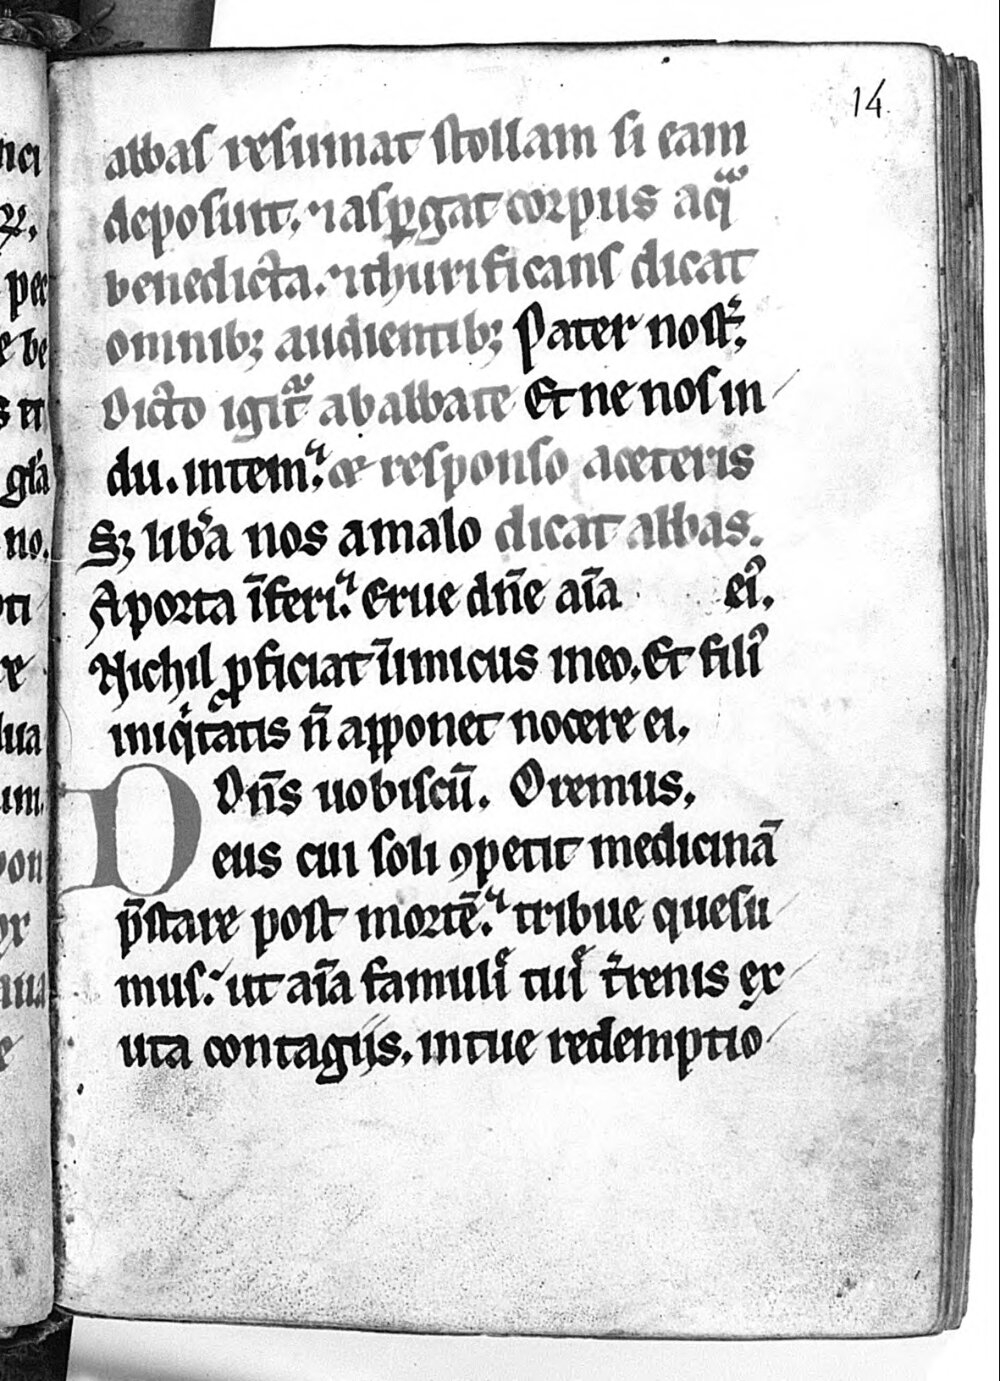 14
abbas resumat stollam si eam
deposuit, ⁊ asꝑgat corpus aqᷓ
benedicta. ⁊ thurificans dicat
omnibꝫ audientibꝫ Pater nostᷣ.
Dicto igitᷣ ab abbate Et ne nos in
du. in tem̅. ac responso a ceteris
Sꝫ lib̾a nos a malo dicat abbas.
A porta i̅feri. Erue dn̅e ai̅a ei᷒.
Nichil ꝓficiat ini̅micus in eo. Et fili᷒
iniqͥtatis n̅ apponet nocere ei.
Dn̅s uobiscu̅. Oremus.
Deus cui soli ꝯpetit medicina̅
p̅stare post morte̅. tribue quesu
mus. ut ai̅a famuli tui t̾renis ex
uta contagiis. in tue redemptio